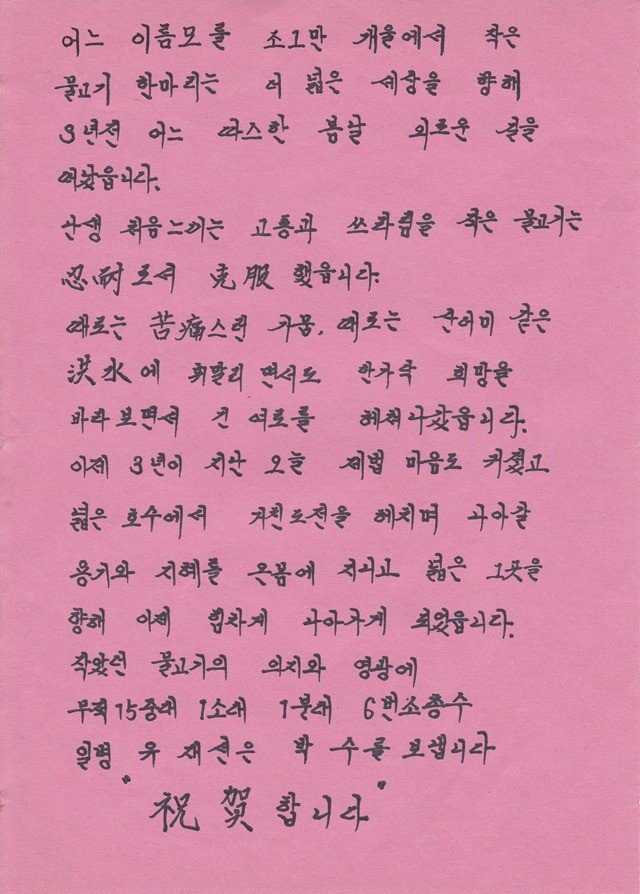 어느 이름모를 조그만 개울에서 작은
물고기 한마리는 더 넓은 세상을 향해
3년전 어느 따스한 봄날 외로운 길을
떠났읍니다.
난생 처음느끼는 고통과 쓰라림을 작은 물고기는
忍耐로서 克服했읍니다.
때로는 苦痛스런 가뭄, 때로는 산더미 같은
洪水에 휘말리면서도 한가닥 희망을
바라보면서 긴 여로를 헤쳐나갔읍니다.
이제 3년이 지난 오늘 제법 마음도 커졌고
넓은 호수에서 거친도전을 헤치며 나아갈
용기와 지혜를 온몸에 지니고 넓은 그곳을
향해 이제 힘차게 나아가게 되었읍니다.
작았던 물고기의 의지와 영광에
무적 15중대 1소대 1분대 6번소총수
일병 유 재선은 박수를 보냅니다
"祝賀합니다"